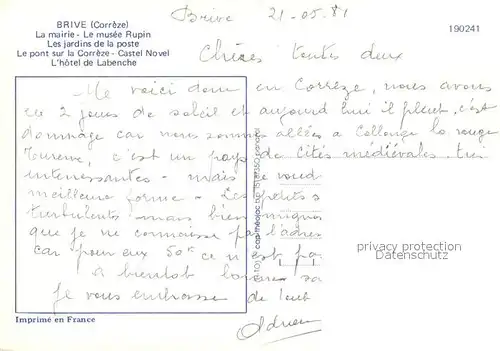 BRIVE (Corrèze)
La mairie - Le musée Rupin
Les jardins de la poste
Le pont sur la Corrèze - Castel Novel
L'hôtel de Labenche
190241
Brive 21-05.81
Chères toutes deux
Me voici donc en Corrèze, nous avons
eu 2 jours de soleil et aujourd'hui il pleut, c'est
dommage car nous sommes allées a Collonge la rouge
Turenne, c'est un pays de cités médiévales très
interressantes - mais je
meilleure forme - Les petits s
turbulents mais bien mignons
que je ne connaisse pas l'adres
car pour eux 50c ce n'est pa
A bientôt
Je vous embrasse de tout
privacy protection
Datenschutz
Imprimé en France